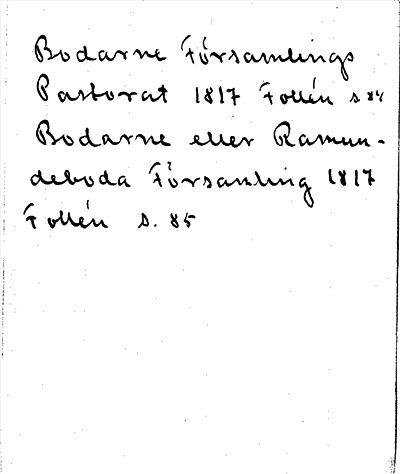 Bodarne Församlings
Pastorat 1817 Follén s 84
Bodarne eller Ramun-
deboda Församling 1817
Follén s. 85